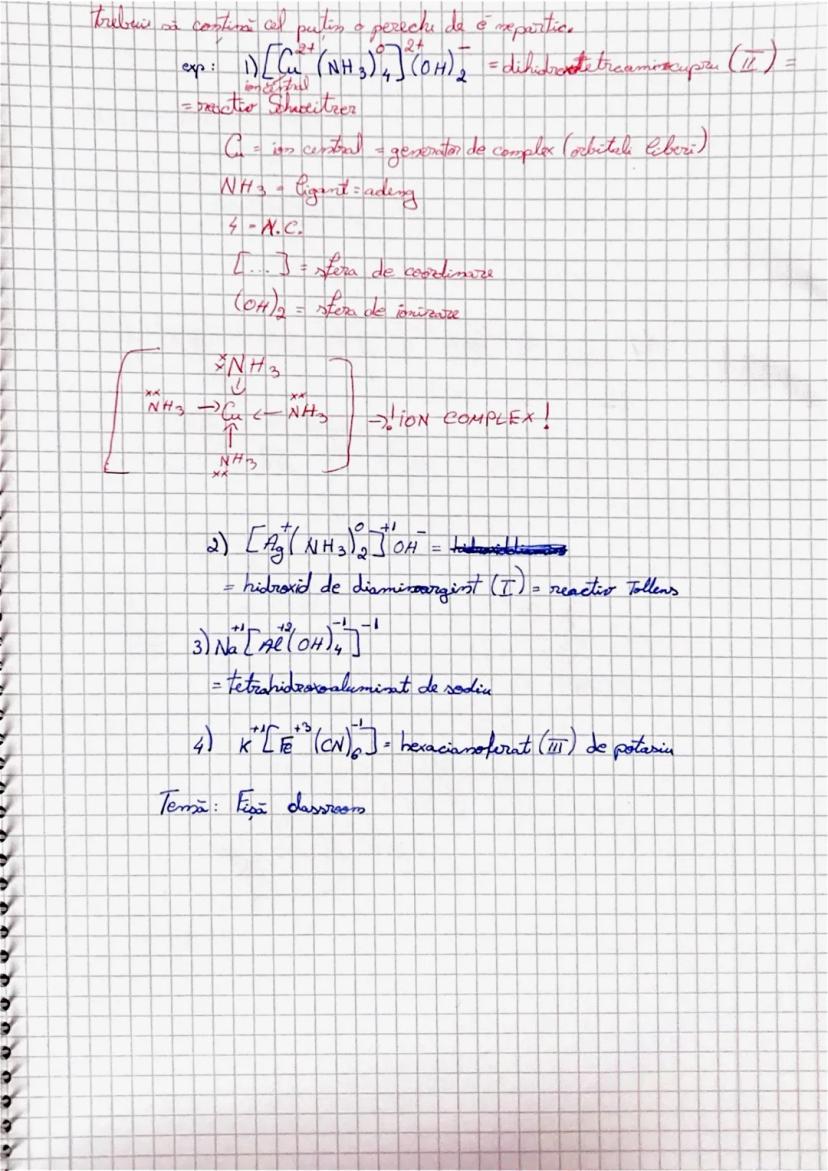 trebuie să conțină cel puțin o pereche de e⁻ neparticp.
exp: 1) [Cu²⁺(NH₃)₄⁰]²⁺(OH)₂⁻ = tetraaminocupru (II) =
ion central
= reactiv Schweitzer
Cu = ion central = generator de complex (orbitali liberi)
NH₃ = ligant = adeng
4 = N.C.
[...] = sfera de coordinare
(OH)₂ = sfera de ionizare
ˣₓNH₃
↓
ˣˣNH₃ → Cu ← ˣˣNH₃ → ! ION COMPLEX!
↑
NH₃
xx
2) [Ag⁺(NH₃)₂⁰]⁺¹OH⁻ =
= hidroxid de diaminoargint (I) = reactiv Tollens
3) Na⁺¹[Al⁺²(OH)₄⁻¹]⁻¹
= tetrahidroxoaluminat de sodiu
4) K⁺¹[Fe⁺³(CN)₆⁻¹] = hexacianoferat (III) de potasiu
Temă: Fișă classroom